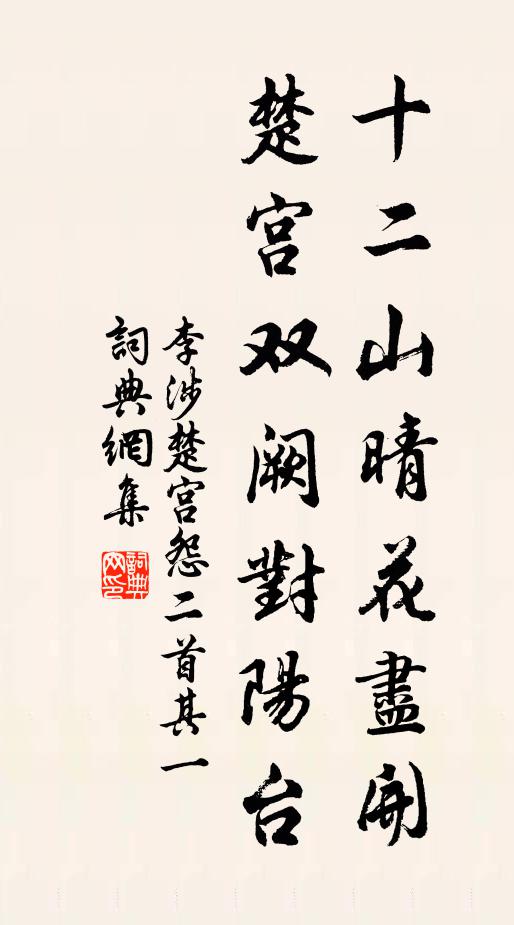 十二山晴花盡開
楚宮双阙對陽台
李涉楚宮怨二首其一
詞典網集
詞典网印